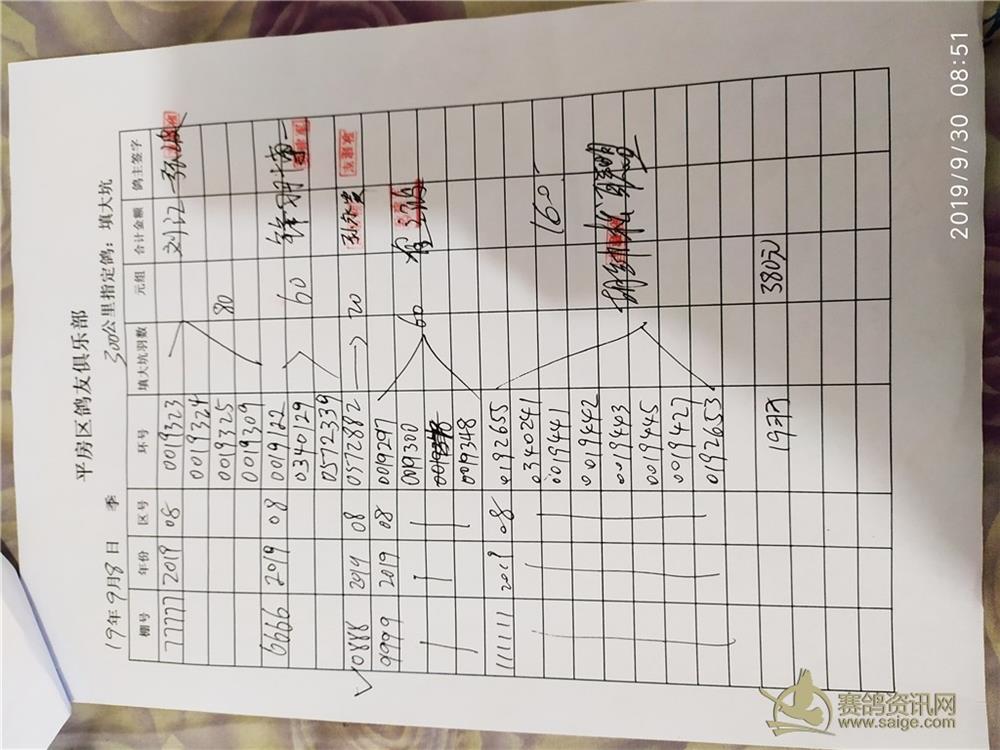 平房区鸽友俱乐部
19年9月8日 季 300公里指定鸽:填大坑
棚号 年份 区号 环号 填大坑羽数 元组 合计金额 鸽主签字
77777 2019 08 0019323 刘江
0019324
0019325 80
0019309
6666 2019 08 0019122
0340129 60
0572339
0888 2019 08 0572882 20 孙永贵
9999 2019 08 0019297
0019300 60
0019348
111111 2019 08 0192655
0340241
0019441 160
0019442
0019443
0019445
0019427
0192653
19只 380元
2019/9/30 08:51
赛鸽资讯网
www.saige.com